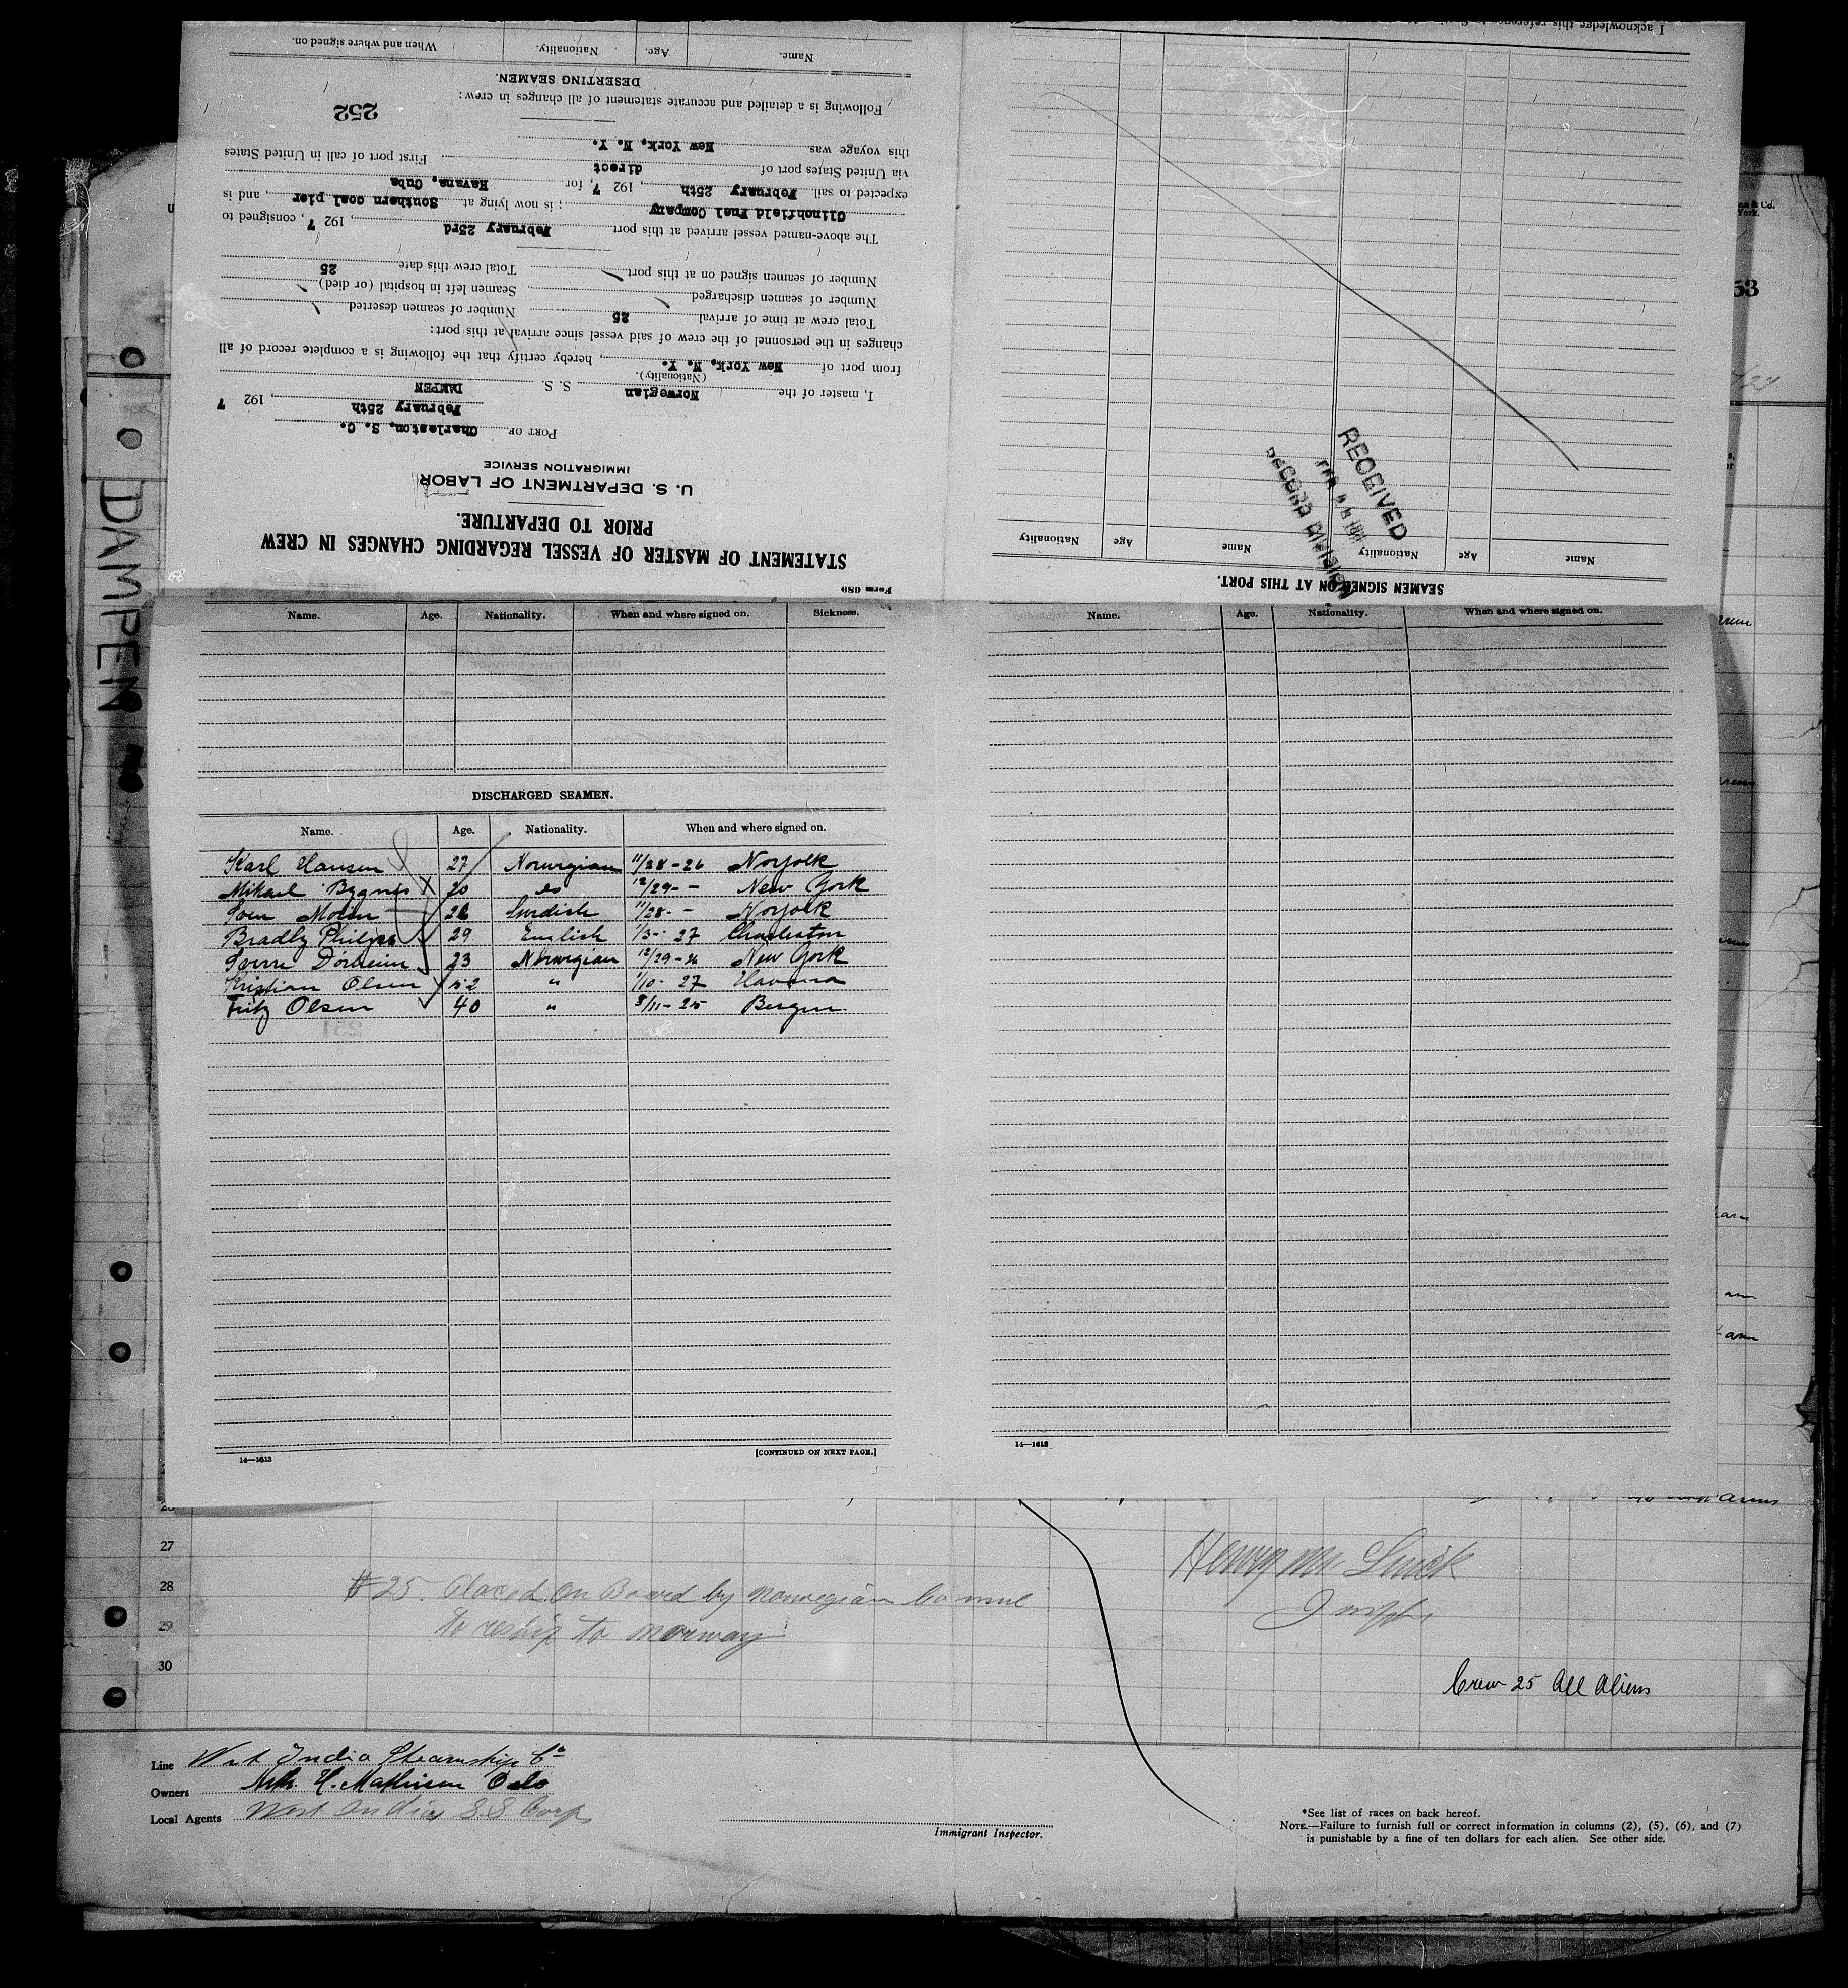 DAMPEN
Form 689
STATEMENT OF MASTER OF VESSEL REGARDING CHANGES IN CREW
PRIOR TO DEPARTURE.
U. S. DEPARTMENT OF LABOR
IMMIGRATION SERVICE
PORT OF Charleston, S. C.
February 25th, 192 7
I, master of the Norwegian S. S. DAMPEN
(Nationality).
from port of New York, N. Y., hereby certify that the following is a complete record of all
changes in the personnel of the crew of said vessel since arrival at this port:
Total crew at time of arrival 25 Number of seamen deserted
Number of seamen discharged Seamen left in hospital (or died)
Number of seamen signed on at this port Total crew this date 25
The above-named vessel arrived at this port February 23rd, 192 7, consigned to
Clinchfield Fuel Company; is now lying at Southern coal pier, and is
expected to sail February 25th, 192 7, for Havana, Cuba
via United States port of direct First port of call in United States
this voyage was New York, N. Y.
Following is a detailed and accurate statement of all changes in crew:
252
DESERTING SEAMEN.
Name. Age. Nationality. When and where signed on.
SEAMEN SIGNED ON AT THIS PORT.
Name Age Nationality Name Age Nationality
RECEIVED
RECORD DIVISION
53
Name. Age. Nationality. When and where signed on. Sickness.
DISCHARGED SEAMEN.
Name. Age. Nationality. When and where signed on.
Karl Hansen 27 Norwegian 11/28-26 Norfolk
Mikael Bygnes 20 do 12/29- - New York
Sven Molin 26 Swedish 11/28- - Norfolk
Bradly Philps 29 English 1/3- 27 Charleston
Sverre Dörheim 23 Norwegian 12/29-26 New York
Kristian Olsen 52 " 1/10- 27 Havana
Fritz Olsen 40 " 8/11-25 Bergen
14—1613 [CONTINUED ON NEXT PAGE.]
Name. Age. Nationality. When and where signed on.
14—1613
27
28
29
30
#25 Placed On Board by Norwegian Consul
to reship to Norway
Crew 25 All Aliens
Line West India Steamship Co
Owners H. Mathiesen Oslo
Local Agents West Indies S.S. Corp
Immigrant Inspector.
*See list of races on back hereof.
NOTE.—Failure to furnish full or correct information in columns (2), (5), (6), and (7)
is punishable by a fine of ten dollars for each alien. See other side.